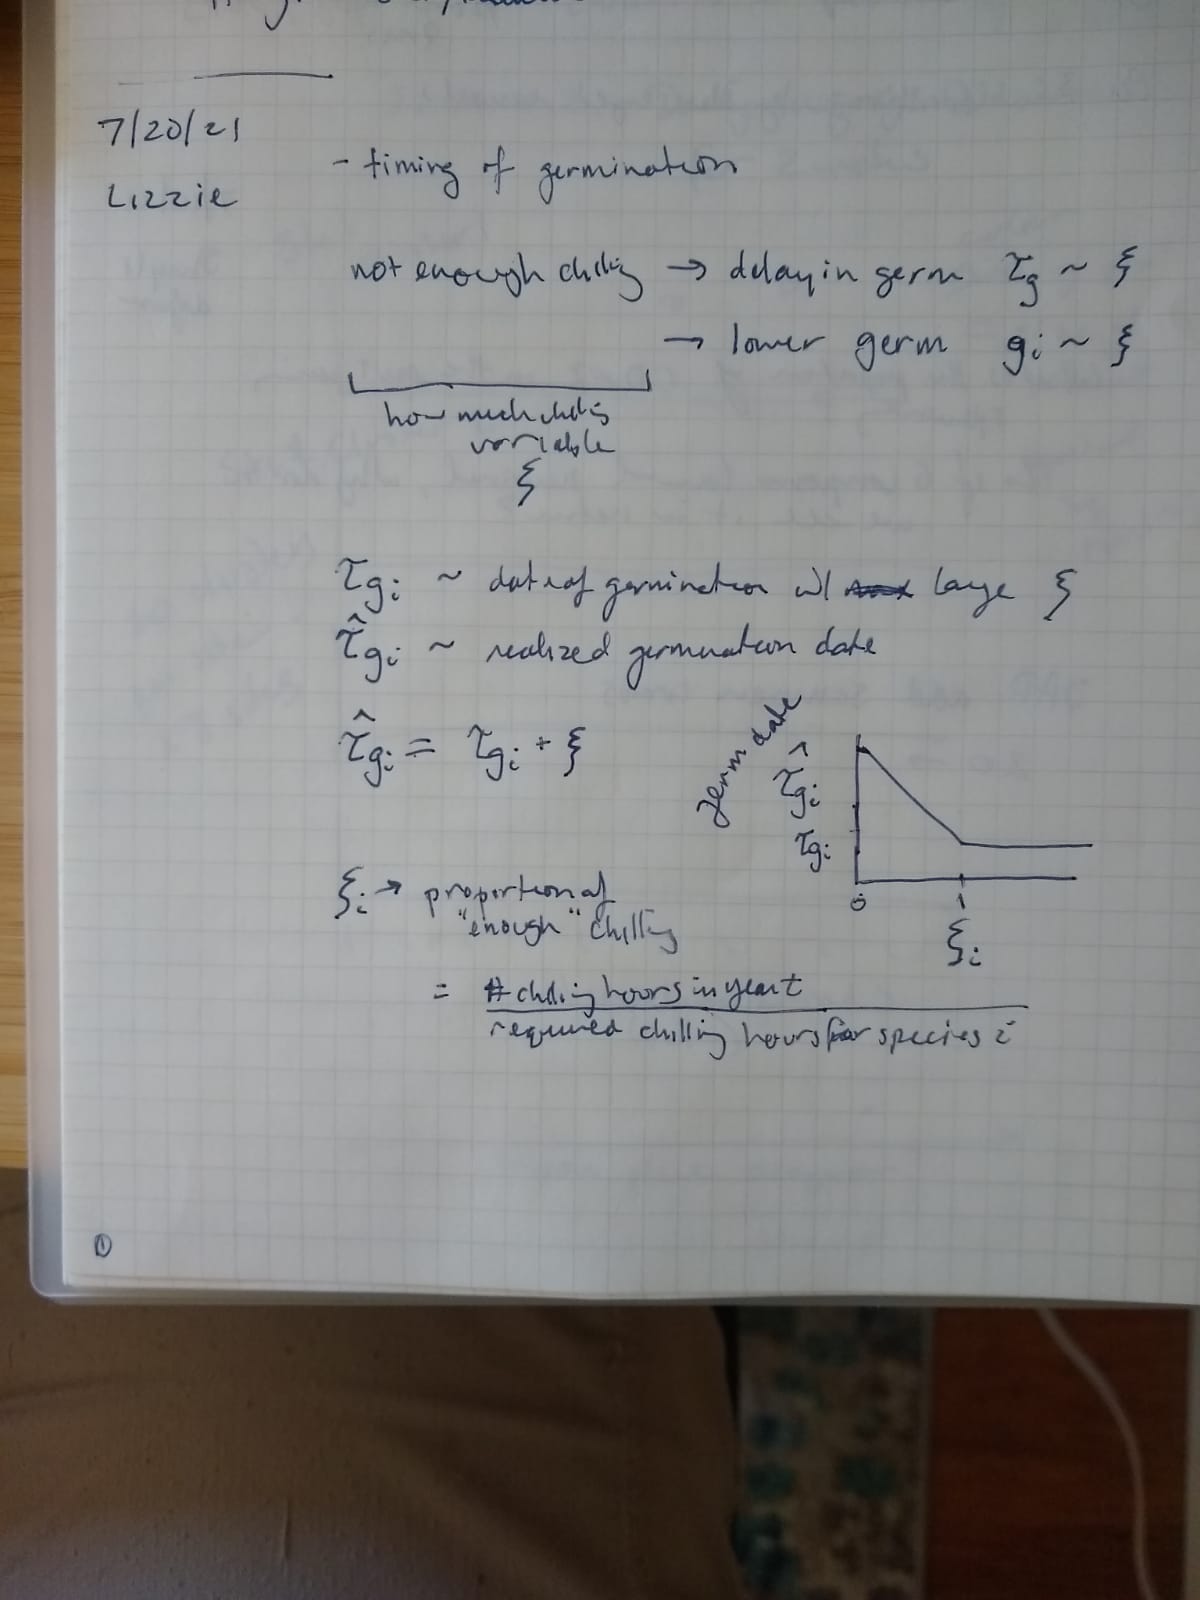 7/20/21
Lizzie
- timing of germination
not enough chilling → delay in germ τg ~ ξ
→ lower germ gi ~ ξ
how much chilling
variable
ξ
τgi ~ date of germination w/ large ξ
τ̂gi ~ realized germination date
τ̂gi = τgi + ξ
germ date
τ̂gi
τgi
0
1
ξi
ξi → proportion of
"enough" chilling
= # chilling hours in year t
required chilling hours for species i
1